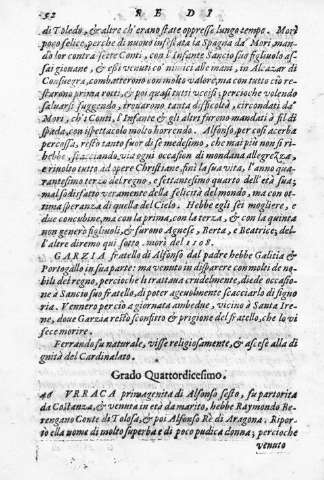 52 R E D I
di Toledo, & altre ch'erano state oppresse lungo tempo. Morì
poco felice, perche di nuouo infestata la Spagna da' Mori, man-
dò lor contra sette Conti, con l'Infante Sancio suo figliuolo as-
sai giouane, & essi venuti co' nimici alle mani, in Alcazar di
Consuegra, combatterono con molto valore, ma con tutto ciò re-
starono prima rotti, & poi quasi tutti vccisi; percioche volendo
saluarsi fuggendo, trouarono tanta difficoltà, circondati da'
Mori, ch'i Conti, l'Infante & gli altri furono mandati à fil di
spada, con ispettacolo molto horrendo. Alfonso, per così acerba
percossa, restò tanto fuor di se medesimo, che mai più non si ri-
hebbe, scacciando via ogni occasion di mondana allegrezza,
e riuolto tutto ad opere Christiane finì la sua vita, l'anno qua-
rantesimo terzo del regno, e settantesimo quarto dell'età sua;
mal sodisfatto veramente della felicità del mondo, ma con ot-
tima speranza di quella del Cielo. Hebbe egli sei mogliere, e
due concubine, ma con la prima, con la terza, & con la quinta
non generò figliuoli, & furono Agnese, Berta, e Beatrice, del-
l'altre diremo quì sotto. morì del 1108.
GARZIA fratello di Alfonso dal padre hebbe Galitia &
Portogallo in sua parte: ma venuto in disparere con molti de no-
bili del regno, perche li trattaua crudelmente, diede occasio-
ne à Sancio suo fratello, di poter ageuolmente scacciarlo di signo
ria. Vennero perciò a giornata ambedue, vicino à Santa Ire-
ne, doue Garzia restò sconfitto & prigione del fratello, che lo vi
fece morire.
Ferrando fu naturale, visse religiosamente, & ascese alla di
gnità del Cardinalato.
Grado Quattordicesimo.
46 VRRACA primagenita di Alfonso sesto, fu partorita
da Costanza, & venuta in età da marito, hebbe Raymondo Be-
rengano Conte di Tolosa, & poi Alfonso Rè di Aragona. Ripor
tò ella nome di molto superba e di poco pudica donna; percioche
venuto